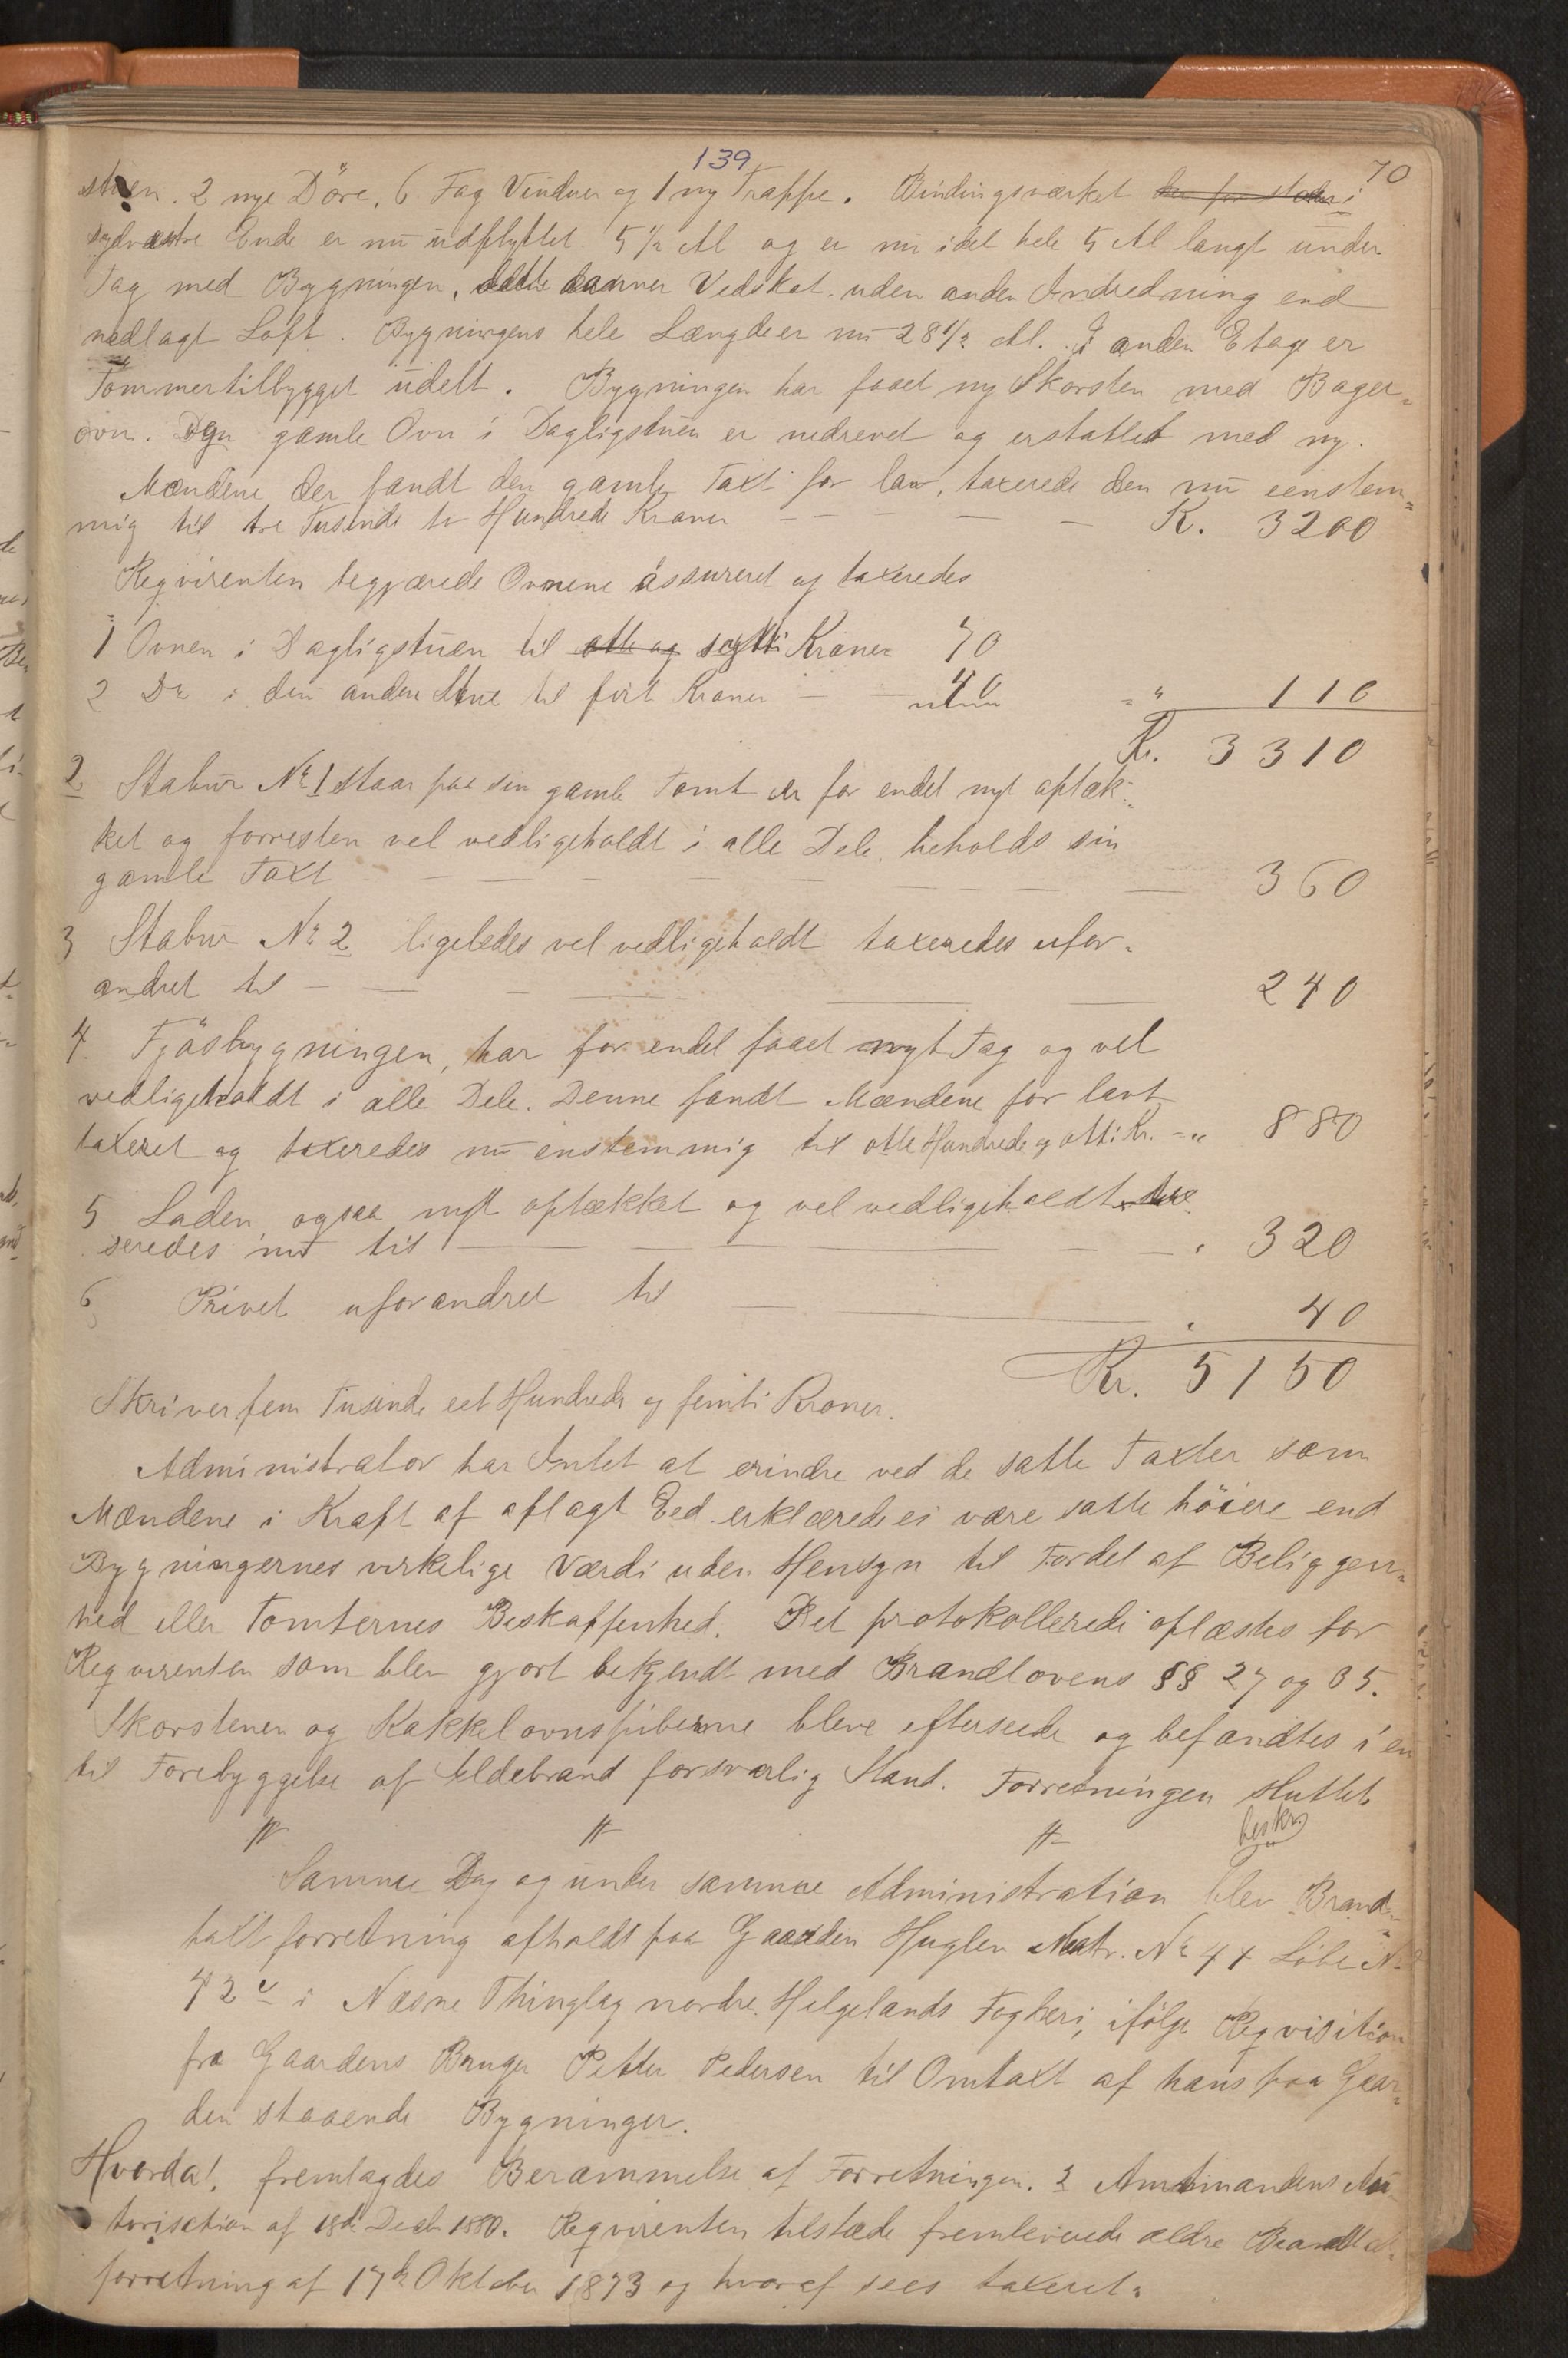 139
70
stuen. 2 nye Döre, 6 Fag Vinduer og 1 ny Trappe. Bindingsværket i
sydvestre Ende er nu udflyttet 5 1/2 Al og er nu i det hele 5 Al langt under
Tag med Bygningen, dette danner Vedskot uden anden Indredning end
nedlagt Loft. Bygningens hele Længde er nu 28 1/2 Al. I anden Etage er
Tömmertilbygget udelt. Bygningen har faaet ny Skorsten med Bager-
ovn. Den gamle Ovn i Dagligstuen er nedrevet og erstattet med ny.
Mændene der fandt den gamle Taxt for lav, taxerede den nu eenstem-
mig til tre Tusinde to Hundrede Kroner — — — — K. 3200
Reqvirenten begjærede Ovnene assureret og taxeredes
1 Ovnen i Dagligstuen til otte og sytti Kroner 70
2 Do i den anden Stue til förti Kroner — 40 " 110
Kr. 3310
2 Stabur No 1 staar paa sin gamle Tomt er for endel nyt oftæk-
ket og forresten vel vedligeholdt i alle Dele, beholds sin
gamle Taxt — — — — 360
3 Stabur No 2 ligeledes vel vedligeholdt taxeredes ufor-
andret til — — — 240
4 Fjösbygningen, har for endel faaet nyt Tag og vel
vedligeholdt i alle Dele. Denne fandt Mændene for lavt
taxeret og taxeredes nu enstemmig til otte Hundrede og otti Kr. - " 880
5 Laden ogsaa nyt oftækket og vel vedligeholdt, tax
seredes nu til — — — " 320
6, Privet uforandret til — " 40
Kr. 5150
Skriver fem Tusinde eet Hundrede og femti Kroner.
Administrator har Intet at erindre ved de satte Taxter som
Mændene i Kraft af aflagt Eed erklærede ei være satte höiere end
Bygningernes virkelige Værdi uden Hensyn til Fordel af Beliggen-
hed eller Tomternes Beskaffenhed. Det protokollerede oplæstes for
Reqvirenten som blev gjort bekjendt med Brandlovens §§ 27 og 35.
Skorstenen og Kakkelovnspiberne bleve efterseede og befandtes i en
til Forebyggelse af Ildebrand forsvarlig Stand. Forretningen sluttet
beskr.
Samme Dag og under samme Administration blev Brand-
taxtforretning afholdt paa Gaarden Huglen Matr. No 44 Löbe N-
42 c i Næsne Thinglag nordre Helgelands Fogderi, ifölge Reqvisition
fra Gaardens Bruger Petter Pedersen til Omtaxt af hans paa Gaar-
den staaende Bygninger.
Hvorda! fremlagdes Berammelse af Forretningen. 2 Amtmandens Au-
torisation af 18de Decbr 1880. Reqvirenten tilstede fremleverede ældre Brandtaxt-
forretning af 17de Oktober 1873 og hvoraf sees taxeret: